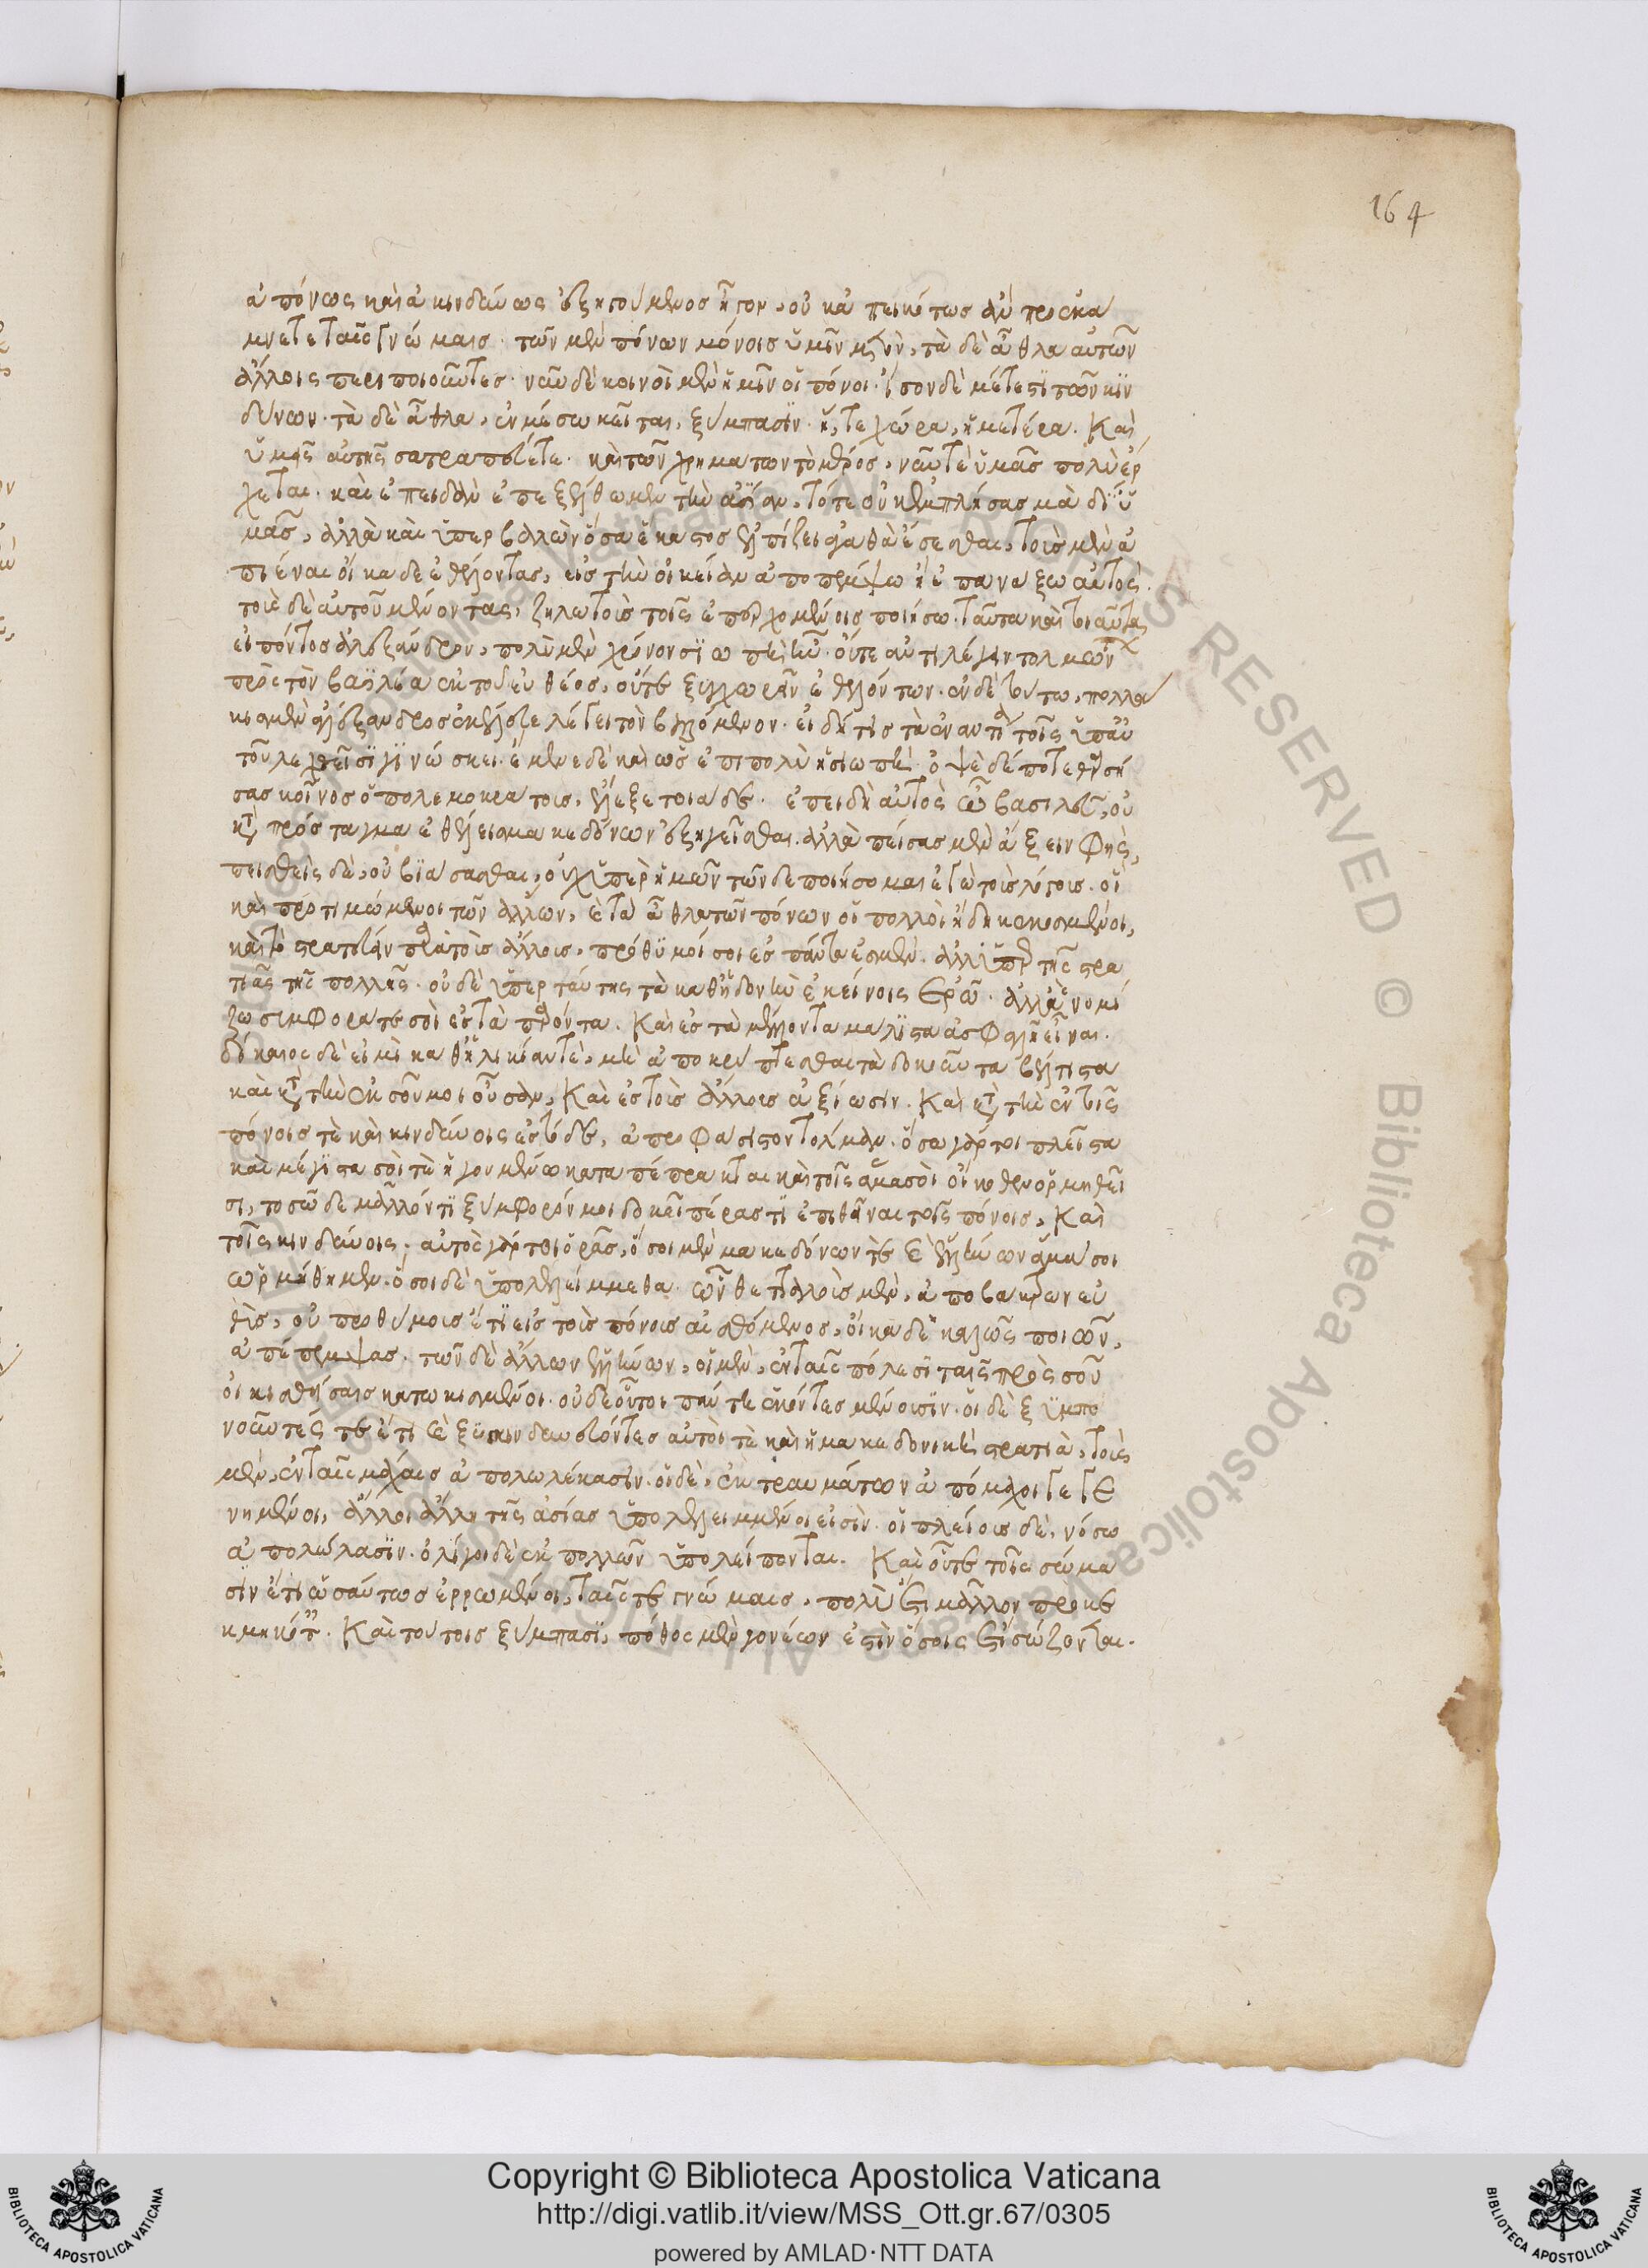 164
ἀπόνως καὶ ἀκινδύνως ἐξηγούμενος ἦγον, οὐκ ἀπεικότως ἂν προεκά
μνετε ταῖς γνώμαις. τῶν μὲν πόνων μόνοις ὑμῖν μετὸν, τὰ δὲ ἆθλα αὐτῶν
ἄλλοις περιποιοῦντες. νῦν δὲ κοινοὶ μὲν ἡμῖν οἱ πόνοι. ἴσον δὲ μέτεστι τῶν κιν
δύνων. τὰ δὲ ἆθλα, ἐν μέσω κεῖται, ξύμπασιν. ἥ, τε χώρα, ἡμετέρα. Καὶ
ὑμεῖς αὐτῆς σατραπεύετε. καὶ τῶν χρημάτων τὸ μέρος, νῦν τὲ ὑμᾶς πολὺ ἔρ
χεται. καὶ ἐπειδὰν ἐπεξέλθωμεν τὴν ἀσίαν, τότε οὐκ ἐμπλήσας μὰ δί' ὑ
μᾶς, ἀλλὰ καὶ ὑπερβαλὼν ὅσα ἕκαστος ἐλπίζει ἀγαθὰ ἔσεσθαι, τοὺς μὲν ἀ
πιέναι οἴκαδε ἐθέλοντας, εἰς τὴν οἰκείαν ἀποπέμψω ἢ ἐπανάξω αὐτός.
τοὺς δὲ αὐτοῦ μένοντας, ζηλωτοὺς τοῖς ἀπερχομένοις ποιήσω. ταῦτα καὶ τοιαῦτα
εἰπόντος ἀλεξάνδρου, πολὺν μὲν χρόνον σιωπὴ ἦν. οὔτε ἀντιλέγειν τολμώντων
πρὸς τὸν βασιλέα ἐκ τοῦ εὐθέος, οὔτε ξυγχωρεῖν ἐθελόντων. ἐν δὲ τούτω, πολλά
κις μὲν ἀλέξανδρος ἐκέλευε λέγειν τὸν βουλόμενον. εἰ δή τις τὰ ἐναντία τοῖς ὑπ' αὐ
τοῦ λεχθεῖσι γινώσκει. ἔμενε δὲ καὶ ὣς ἐπιπολὺ ἡ σιωπή. ὀψὲ δέ ποτε θαρσή
σας κοῖνος ὁ πολεμοκράτους, ἔλεξε τοιάδε. ἐπειδὴ αὐτὸς ὦ βασιλεῦ, οὐ
κατὰ πρόσταγμα ἐθέλεις μακεδόνων ἐξηγεῖσθαι. ἀλλὰ πείσας μὲν ἄξειν φῂς,
πεισθεὶς δὲ, οὐ βιάσασθαι, οὐχ ὑπὲρ ἡμῶν τῶνδε ποιήσομαι ἐγὼ τοὺς λόγους. οἳ
καὶ προτιμώμενοι τῶν ἄλλων, καὶ τὰ ἆθλα τῶν πόνων οἱ πολλοὶ ἤδη κεκομισμένοι,
καὶ τὸ κρατιστεύειν παρὰ τοὺς ἄλλους, πρόθυμοί σοι ἐς πάντα ἐσμέν. ἀλλ' ὑπὲρ τῆς στρα
τιᾶς τῆς πολλῆς. οὐδὲ ὑπὲρ ταύτης τὰ καθ' ἡδονὴν ἐκείνοις ἐρῶ. ἀλλὰ ἃ νομί
ζω σύμφορά τε σοὶ ἐς τὰ παρόντα. Καὶ ἐς τὰ μέλλοντα μάλιστα ἀσφαλῆ εἶναι.
δίκαιος δὲ εἰμὶ καθ' ἡλικίαν τὲ, μὴ ἀποκρύπτεσθαι τὰ δοκοῦντα βέλτιστα
καὶ κατὰ τὴν ἐκ σοῦ μοι οὖσαν, Καὶ ἐς τοὺς ἄλλους ἀξίωσιν. Καὶ κατὰ τὴν ἐν τοῖς
πόνοις τὲ καὶ κινδύνοις ἐς τόδε, ἀπροφάσιστον τόλμαν. ὅσω γάρ τοι πλεῖστα
καὶ μέγιστα σοὶ τὲ ἡγουμένω καταπέπρακται καὶ τοῖς ἅμα σοὶ οἴκοθεν ὁρμηθεῖ
σι, τοσῶδε μᾶλλόν τι ξύμφορόν μοι δοκεῖ πέρας τι ἐπιθεῖναι τοῖς πόνοις, Καὶ
τοῖς κινδύνοις. αὐτὸς γάρ τοι ὁρᾷς, ὅσοι μὲν μακεδόνων τὲ καὶ ἑλλήνων ἅμα σοι
ὡρμήθημεν. ὅσοι δὲ ὑπολελείμμεθα. ὧν θετταλοὺς μὲν, ἀπὸ βάκτρων εὐ
θὺς, οὐ προθύμους ἔτι εἰς τοὺς πόνους αἰσθόμενος, οἴκαδε καλῶς ποιῶν,
ἀπέπεμψας. τῶν δὲ ἄλλων ἑλλήνων, οἱ μὲν, ἐν ταῖς πόλεσι ταῖς πρὸς σοῦ
οἰκισθείσαις κατωκισμένοι. οὐδὲ οὗτοι πάντη ἑκόντες μένουσιν. οἱ δὲ ξυμπο
νοῦντές τε ἔτι καὶ ξυγκινδυνεύοντες αὐτοί τὲ καὶ ἡ μακεδονικὴ στρατιὰ, τοὺς
μὲν, ἐν ταῖς μάχαις ἀπολωλέκασιν. οἱ δὲ, ἐκ τραυμάτων ἀπόμαχοι γεγε
νημένοι, ἄλλοι ἄλλη τῆς ἀσίας ὑπολελειμμένοι εἰσίν. οἱ πλείους δὲ, νόσω
ἀπολώλασιν. ὀλίγοι δὲ ἐκ πολλῶν ὑπολείπονται. Καὶ οὔτε τοῖς σώμα
σιν ἔτι ὡσαύτως ἐρρωμένοι, ταῖς τε γνώμαις, πολὺ ἔτι μᾶλλον προκε
κμηκότες. Καὶ τούτοις ξύμπασι, πόθος μὲν γονέων ἐστὶν ὅσοις ἔτι σώζονται.
Copyright © Biblioteca Apostolica Vaticana
http://digi.vatlib.it/view/MSS_Ott.gr.67/0305
powered by AMLAD·NTT DATA